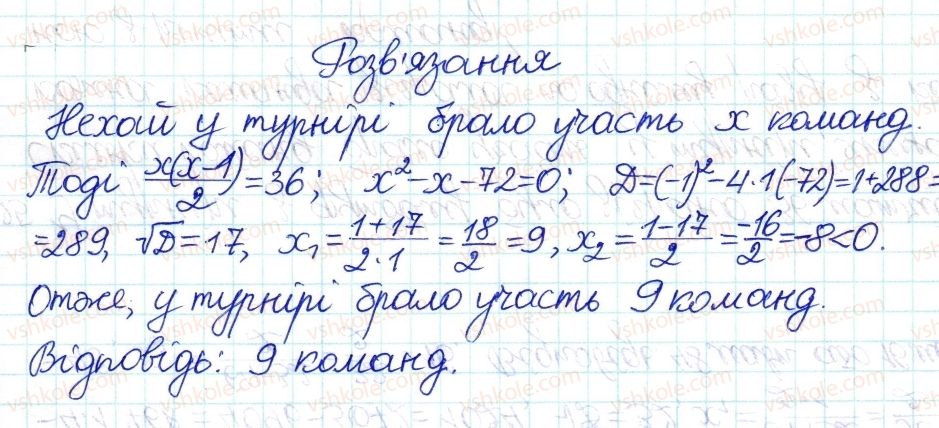 Розв'язання
Нехай у турнірі брало участь x команд.
Тоді x(x-1)/2 =36; x²-x-72=0; D=(-1)²-4·1(-72)=1+288=
=289, √D=17, x₁=(1+17)/(2·1)=18/2=9, x₂=(1-17)/2=-16/2=-8<0.
Отже, у турнірі брало участь 9 команд.
Відповідь: 9 команд.